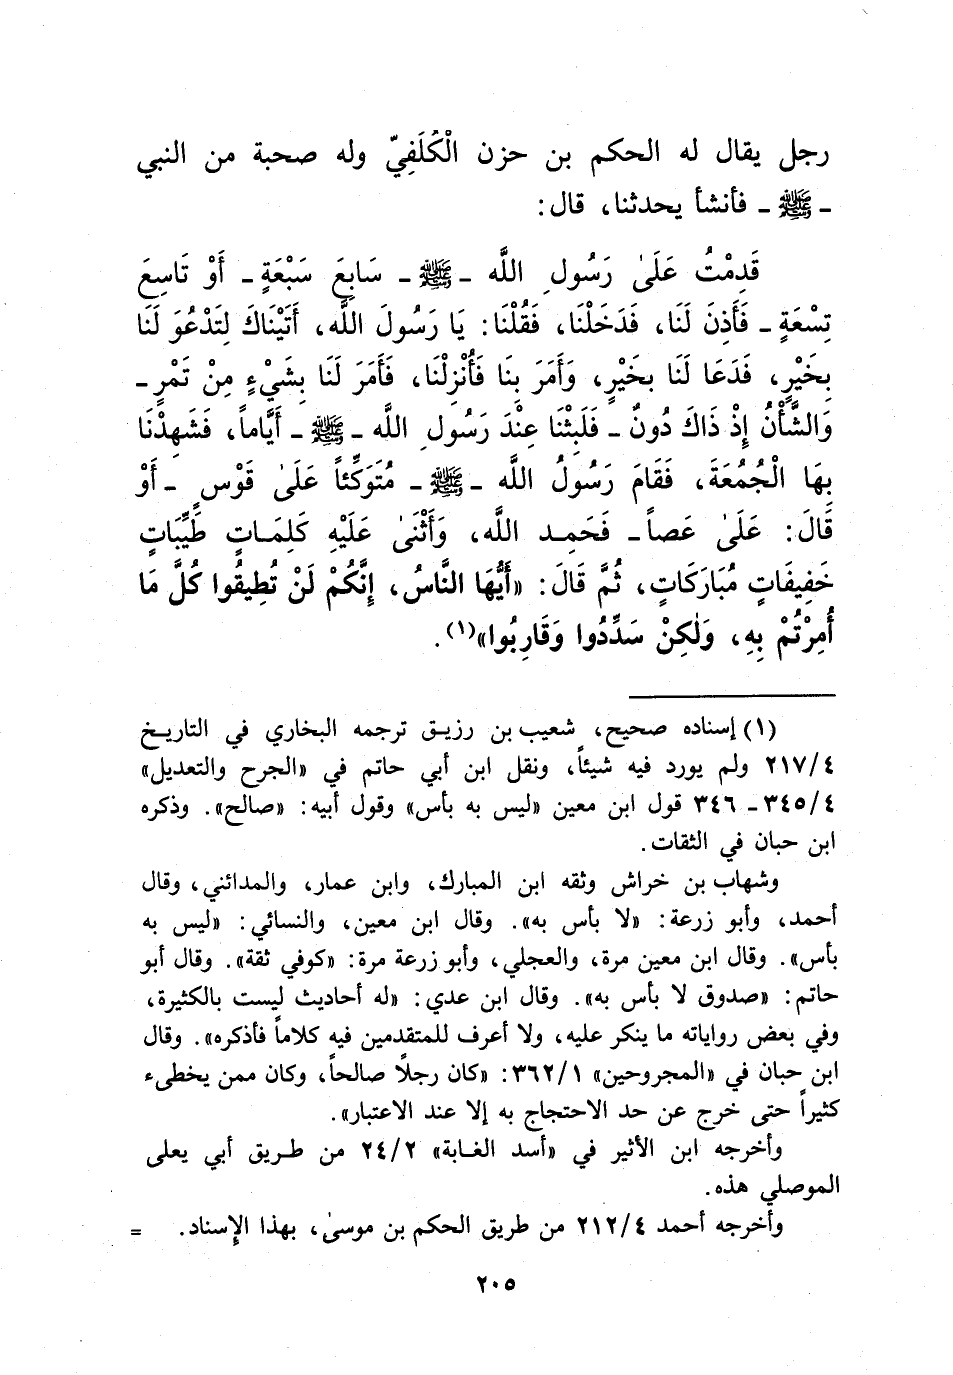 رجل يقال له الحكم بن حزن الْكُلَفِيّ وله صحبة من النبي
ـ ﷺ ـ فأنشأ يحدثنا، قال:
قَدِمْتُ عَلَىٰ رَسُولِ اللَّه ـ ﷺ ـ سَابِعَ سَبْعَةٍ ـ أَوْ تَاسِعَ
تِسْعَةٍ ـ فَأَذِنَ لَنَا، فَدَخَلْنَا، فَقُلْنَا: يَا رَسُولَ اللَّه، أَتَيْنَاكَ لِتَدْعُوَ لَنَا
بِخَيْرٍ، فَدَعَا لَنَا بِخَيْرٍ، وَأَمَرَ بِنَا فَأُنْزِلْنَا، فَأَمَرَ لَنَا بِشَيْءٍ مِنْ تَمْرٍ ـ
وَالشَّأْنُ إِذْ ذَاكَ دُونٌ ـ فَلَبِثْنَا عِنْدَ رَسُولِ اللَّه ـ ﷺ ـ أَيَّاماً، فَشَهِدْنَا
بِهَا الْجُمُعَةَ، فَقَامَ رَسُولُ اللَّه ـ ﷺ ـ مُتَوَكِّئاً عَلَىٰ قَوْسٍ ـ أَوْ
قَالَ: عَلَىٰ عَصاً ـ فَحَمِـد اللَّه، وَأَثْنَىٰ عَلَيْهِ كَلِمَـاتٍ طَيِّبَاتٍ
خَفِيفَاتٍ مُبَارَكَاتٍ، ثُمَّ قَالَ: «أَيُّهَا النَّاسُ، إِنَّكُمْ لَنْ تُطِيقُوا كُلَّ مَا
أُمِرْتُمْ بِهِ، وَلٰكِنْ سَدِّدُوا وَقَارِبُوا»(١).
(١) إسناده صحيح، شعيب بن رزيـق ترجمه البخاري في التاريـخ
٢١٧/٤ ولم يورد فيه شيئاً، ونقل ابن أبي حاتم في «الجرح والتعديل»
٣٤٥/٤ ـ ٣٤٦ قول ابن معين «ليس به بأس» وقول أبيه: «صالح». وذكره
ابن حبان في الثقات.
وشهاب بن خراش وثقه ابن المبارك، وابن عمار، والمدائني، وقال
أحمد، وأبو زرعة: «لا بأس به». وقال ابن معين، والنسائي: «ليس به
بأس». وقال ابن معين مرة، والعجلي، وأبو زرعة مرة: «كوفي ثقة». وقال أبو
حاتم: «صدوق لا بأس به». وقال ابن عدي: «له أحاديث ليست بالكثيرة،
وفي بعض رواياته ما ينكر عليه، ولا أعرف للمتقدمين فيه كلاماً فأذكره». وقال
ابن حبان في «المجروحين» ٣٦٢/١: «كان رجلاً صالحاً، وكان ممن يخطىء
كثيراً حتى خرج عن حد الاحتجاج به إلا عند الاعتبار».
وأخرجه ابن الأثير في «أسد الغـابة» ٢٤/٢ من طـريق أبي يعلى
الموصلي هذه.
وأخرجه أحمد ٢١٢/٤ من طريق الحكم بن موسىٰ، بهذا الإسناد. =
٢٠٥